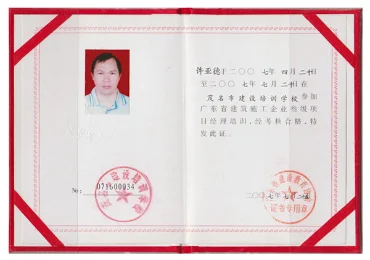 No: 071600034
许亚德于二〇〇七年四月二十日
至二〇〇七年七月二十日在
茂名市建设培训学校参加
广东省建筑施工企业叁级项
目经理培训,经考核合格,特
发此证。
二〇〇七年七月二十日
证书专用章